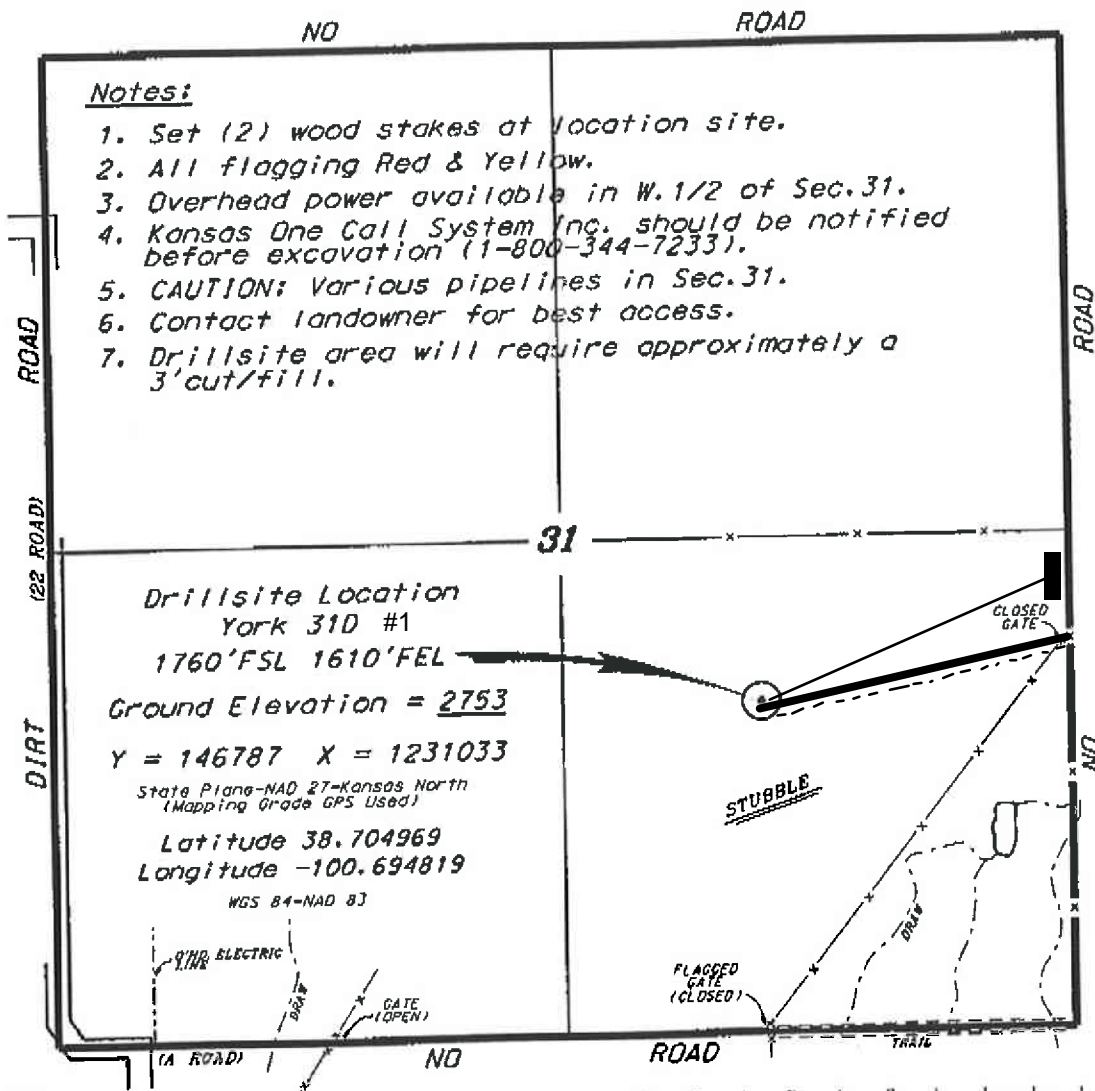 NO ROAD
Notes:
1. Set (2) wood stakes at location site.
2. All flagging Red & Yellow.
3. Overhead power available in W.1/2 of Sec.31.
4. Kansas One Call System Inc. should be notified
before excavation (1-800-344-7233).
5. CAUTION: Various pipelines in Sec.31.
6. Contact landowner for best access.
7. Drillsite area will require approximately a
3'cut/fill.
ROAD
ROAD
(22 ROAD)
31
Drillsite Location
York 31D #1
1760'FSL 1610'FEL
CLOSED
GATE
Ground Elevation = 2753
DIRT
NO
Y = 146787 X = 1231033
State Plane-NAD 27-Kansas North
(Mapping Grade GPS Used)
STUBBLE
Latitude 38.704969
Longitude -100.694819
WGS 84-NAD 83
DRAW
O'HD. ELECTRIC
LINE
DRAW
GATE
(OPEN)
FLAGGED
GATE
(CLOSED)
(A ROAD)
NO ROAD
TRAIL